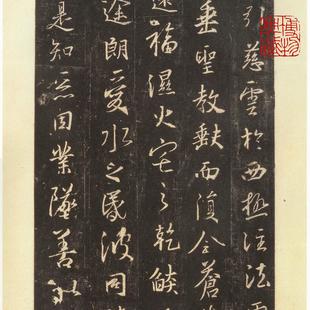 引慈雲於西極注法雨
垂聖教缺而復全蒼生
還福濕火宅之乾燄共
途朗愛水之昏波同
是知惡因業墜善以